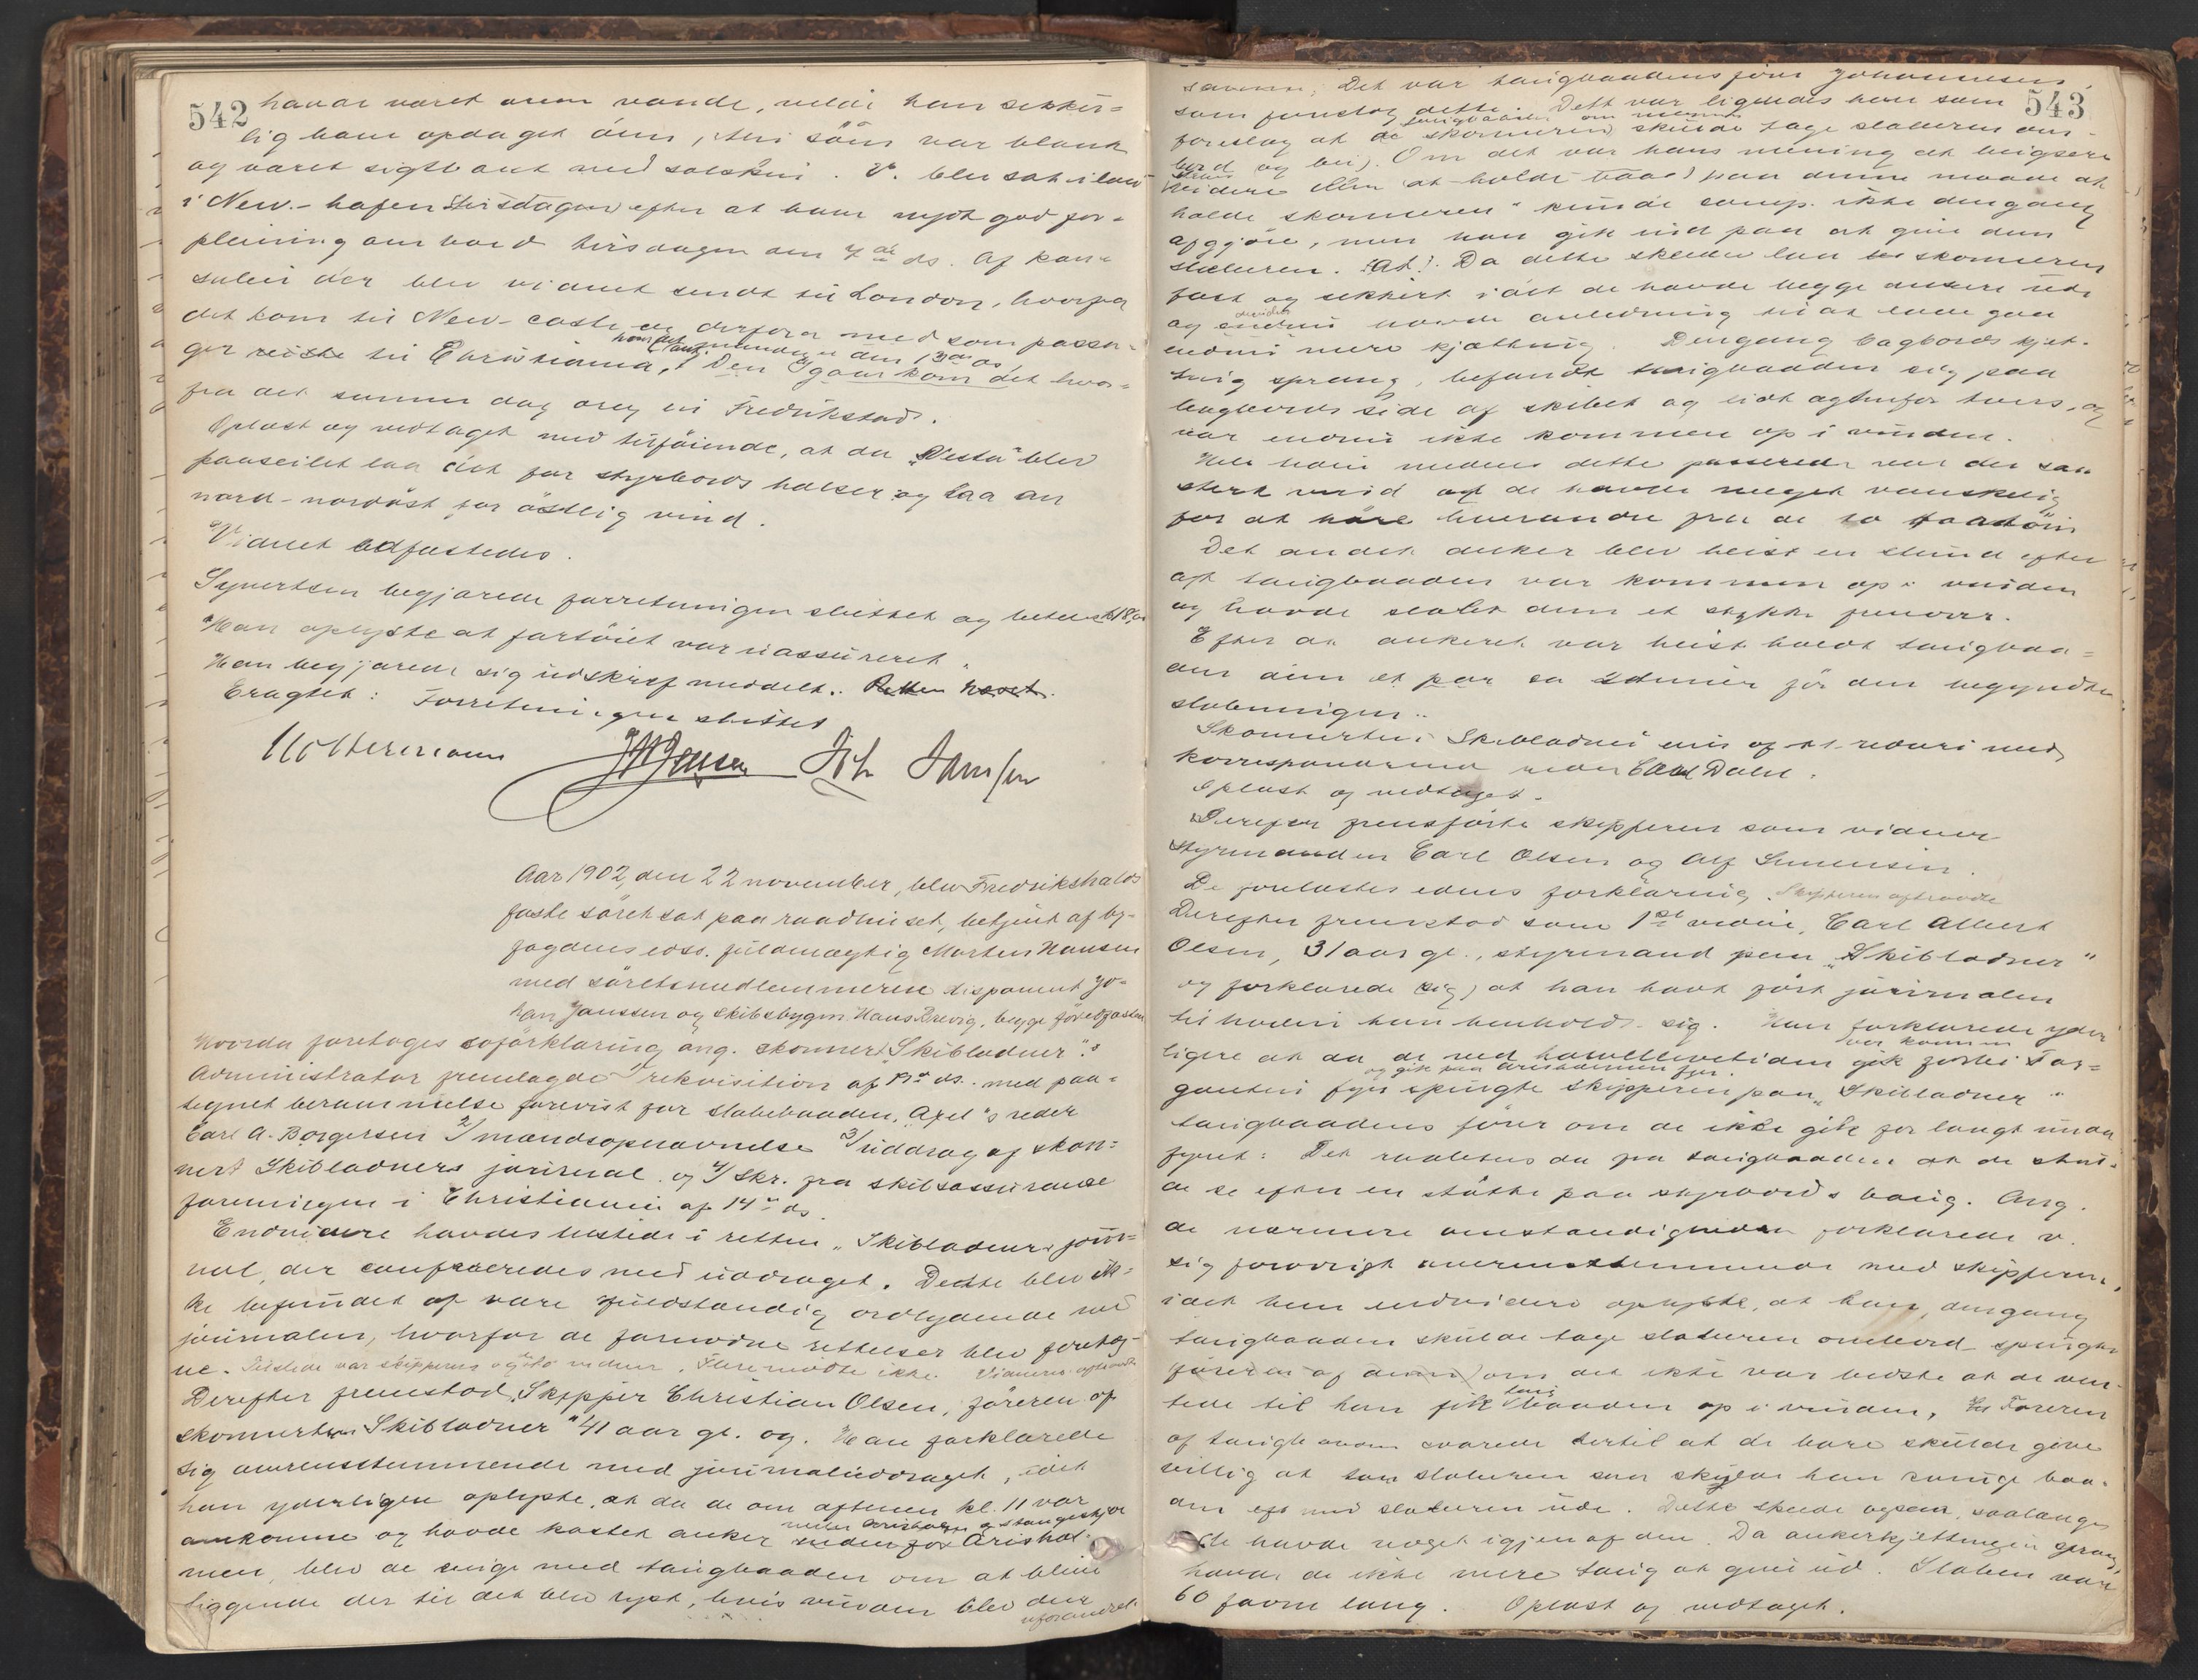 542
havde været oven vande, vilde han sikker-
lig have opdaget den, thi söen var blank
og været sigtbart med solskin. V. blev sat iland
i New-hafen tirsdagen efter at have nydt god for-
pleining ombord tirsdagen den 4de ds. Af kon-
sulen der blev vidnet sendt til London, hvorfra
det kom til New-castle og derfra med som passa-
ger reiste til Christiania,
hvor det ank. mandag den 13de ds.
Den Igaar kom det hvor-
fra det samme dag drog til Fredrikstad.
Oplæst og vedtaget med tilföiende, at da "Vesta" blev
paaseilet laa det for styrbords halser og laa an
nord-nordöst for östlig vind.
Vidnet edfæstedes.
Syvertsen begjærede forretningen sluttet og betalte 18,
Han oplyste at fartöiet var uassureret.
Han begjærede sig udskrift meddelt. Retten hævet.
Eragtet: Forretningen sluttet
Aar 1902, den 22 november, blev Fredrikshalds
faste söret sat paa raadhuset, betjent af by-
fogdens edss. fuldmægtig Morten Hansen
med söretsmedlemmerne disponent Jo-
han Janssen og skibsbygm. Hans Brevig, begge för edfæstet
Hvorda foretoges söforklaring ang. skonnert "Skibladner":
Administrator fremlagde 1/ rekvisition af ds. med paa-
tegnet berammelse forevist for slæbebaaden "Axel"s reder
Carl A. Borgersen 2/ mændsopnævnelse 3/ uddrag af skon-
nert Skibladners journal og 4/ skr. fra skibsassurance
foreningen i Christiania af 14de ds.
Endvidere havdes tilstede i retten "Skibladners" jour-
nal, der confereredes med uddraget. Dette blev ik-
ke befundet at være fuldstændig ordlydende med
journalen, hvorfor de fornødne rettelser blev foretag-
ne. Tilstede var skipperen og to vidner. Flere mödte ikke. Vidnerne aftraadte
Derefter fremstod Skipper Christian Olsen, föreren af
skonnerten "Skibladner" 41 aar gl. og. Han forklarede
sig overensstemmende med journaluddraget, idet
han yderligere oplyste, at da de om aftenen kl. 11 var
ankomne og havde kastet anker
mellem Arisholmen og Stangeskjær
nedenfor Arishol-
men, blev de enige med taugbaaden om at blive
liggende der til det blev lyst, hvis vinden blev den
uforandret
543
Det var taugbaadens förer Johannessen,
som foreslog dette. Det var ligeledes han som
foreslog at de skonneren skulde tage slæberen om-
bord og hei). Om det var hans mening at bugsere
videre eller at holde baa) paa denne maade at
holde skonneren kunde comp. ikke dengang
afgjöre, men han gik ind paa at give dem
slæberen. Da dette skede laa skonneren
fast og sikkert idet de havde begge ankere ude
og endnu
desuden
havde anledning til at lade gaa
endnu mere kjætting. Dengang bagbords kjet-
ting sprang, befandt taugbaaden sig paa
bagbords side af skibet og lidt agtenfor tvers, og
var endnu ikke kommen op i vinden.
Hele tiden medens dette passerede var der saa
sterk vind at de havde meget vanskelig
for at höre hverandre fra de to fartöier
Det andet anker blev heist en stund efter
at taugbaaden var kommen op i vinden
og havde slæbt dem et stykke fremover.
Efter at ankeret var heist holdt taugbaa-
den dem et par ca 2 timer för den begyndte
slæbningen.
Skonnerten Skibladner eies af et rederi med
korresponderende reder Carl Dahl.
Oplæst og vedtaget.
Derefter fremförte skipperen som vidner
Styrmanden Carl Olsen og Alf Simensen.
De forelæstes edens forklaring. Skipperen aftraadte
Derefter fremstod som 1ste vidne, Carl Albert
Olsen, 31 aar gl., styrmand paa "Skibladner"
og forklarede sig, at han havt fört journalen
til hvilken han henholdt sig. Han forklarede yder-
ligere at da de ved halvellevetiden
var kommen
gik forbi Tor-
og gik paa Arisholmen fyr.
gauten fyr spurgte skipperen paa "Skibladner"
taugbaadens förer om de ikke gik for langt unda
fyret: Det raabtes da fra taugbaaden at de skul-
de se efter en stötte paa styrbords boug. Ang.
de nærmere omstændigheder forklarede v.
sig forövrigt overensstemmende med skipperen,
idet han endvidere oplyste, at han, dengang
taugbaaden skulde tage slæberen ombord spurgte
föreren af denne) om det ikke var bedst at de ven-
tede til han fik
taug
baaden op i vinden. Föreren
af taugbaaden svarede dertil at de bare skulde give
villig at tov slæberen saa skulde han bringe baa-
den op med slæberen ude. Dette skede ogsaa, saalænge
de havde noget igjen af den. Da ankerkjettingen sprang,
havde de ikke mere taug at give ud. Slæben var
60 favne lang. Oplæst og vedtaget.